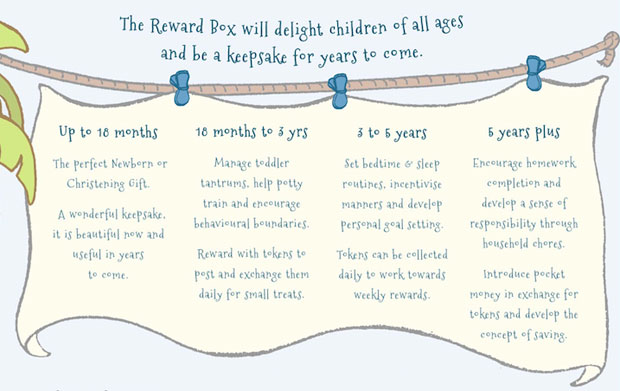 The Reward Box will delight children of all ages
and be a keepsake for years to come.
Up to 18 months
The perfect Newborn or
Christening Gift.
A wonderful keepsake,
it is beautiful now and
useful in years
to come.
18 months to 3 yrs
Manage toddler
tantrums, help potty
train and encourage
behavioural boundaries.
Reward with tokens to
post and exchange them
daily for small treats.
3 to 5 years
Set bedtime & sleep
routines, incentivise
manners and develop
personal goal setting.
Tokens can be collected
daily to work towards
weekly rewards.
5 years plus
Encourage homework
completion and
develop a sense of
responsibility through
household chores.
Introduce pocket
money in exchange for
tokens and develop the
concept of saving.